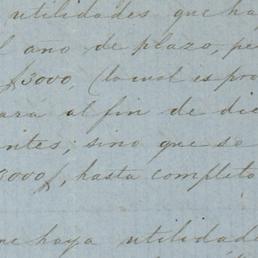 utilidades que ha
año de plazo, pe
$3000, (lo cual es pro
ara al fin de die
ntes; sino que se
3000$, hasta completo
ne haya utilidad